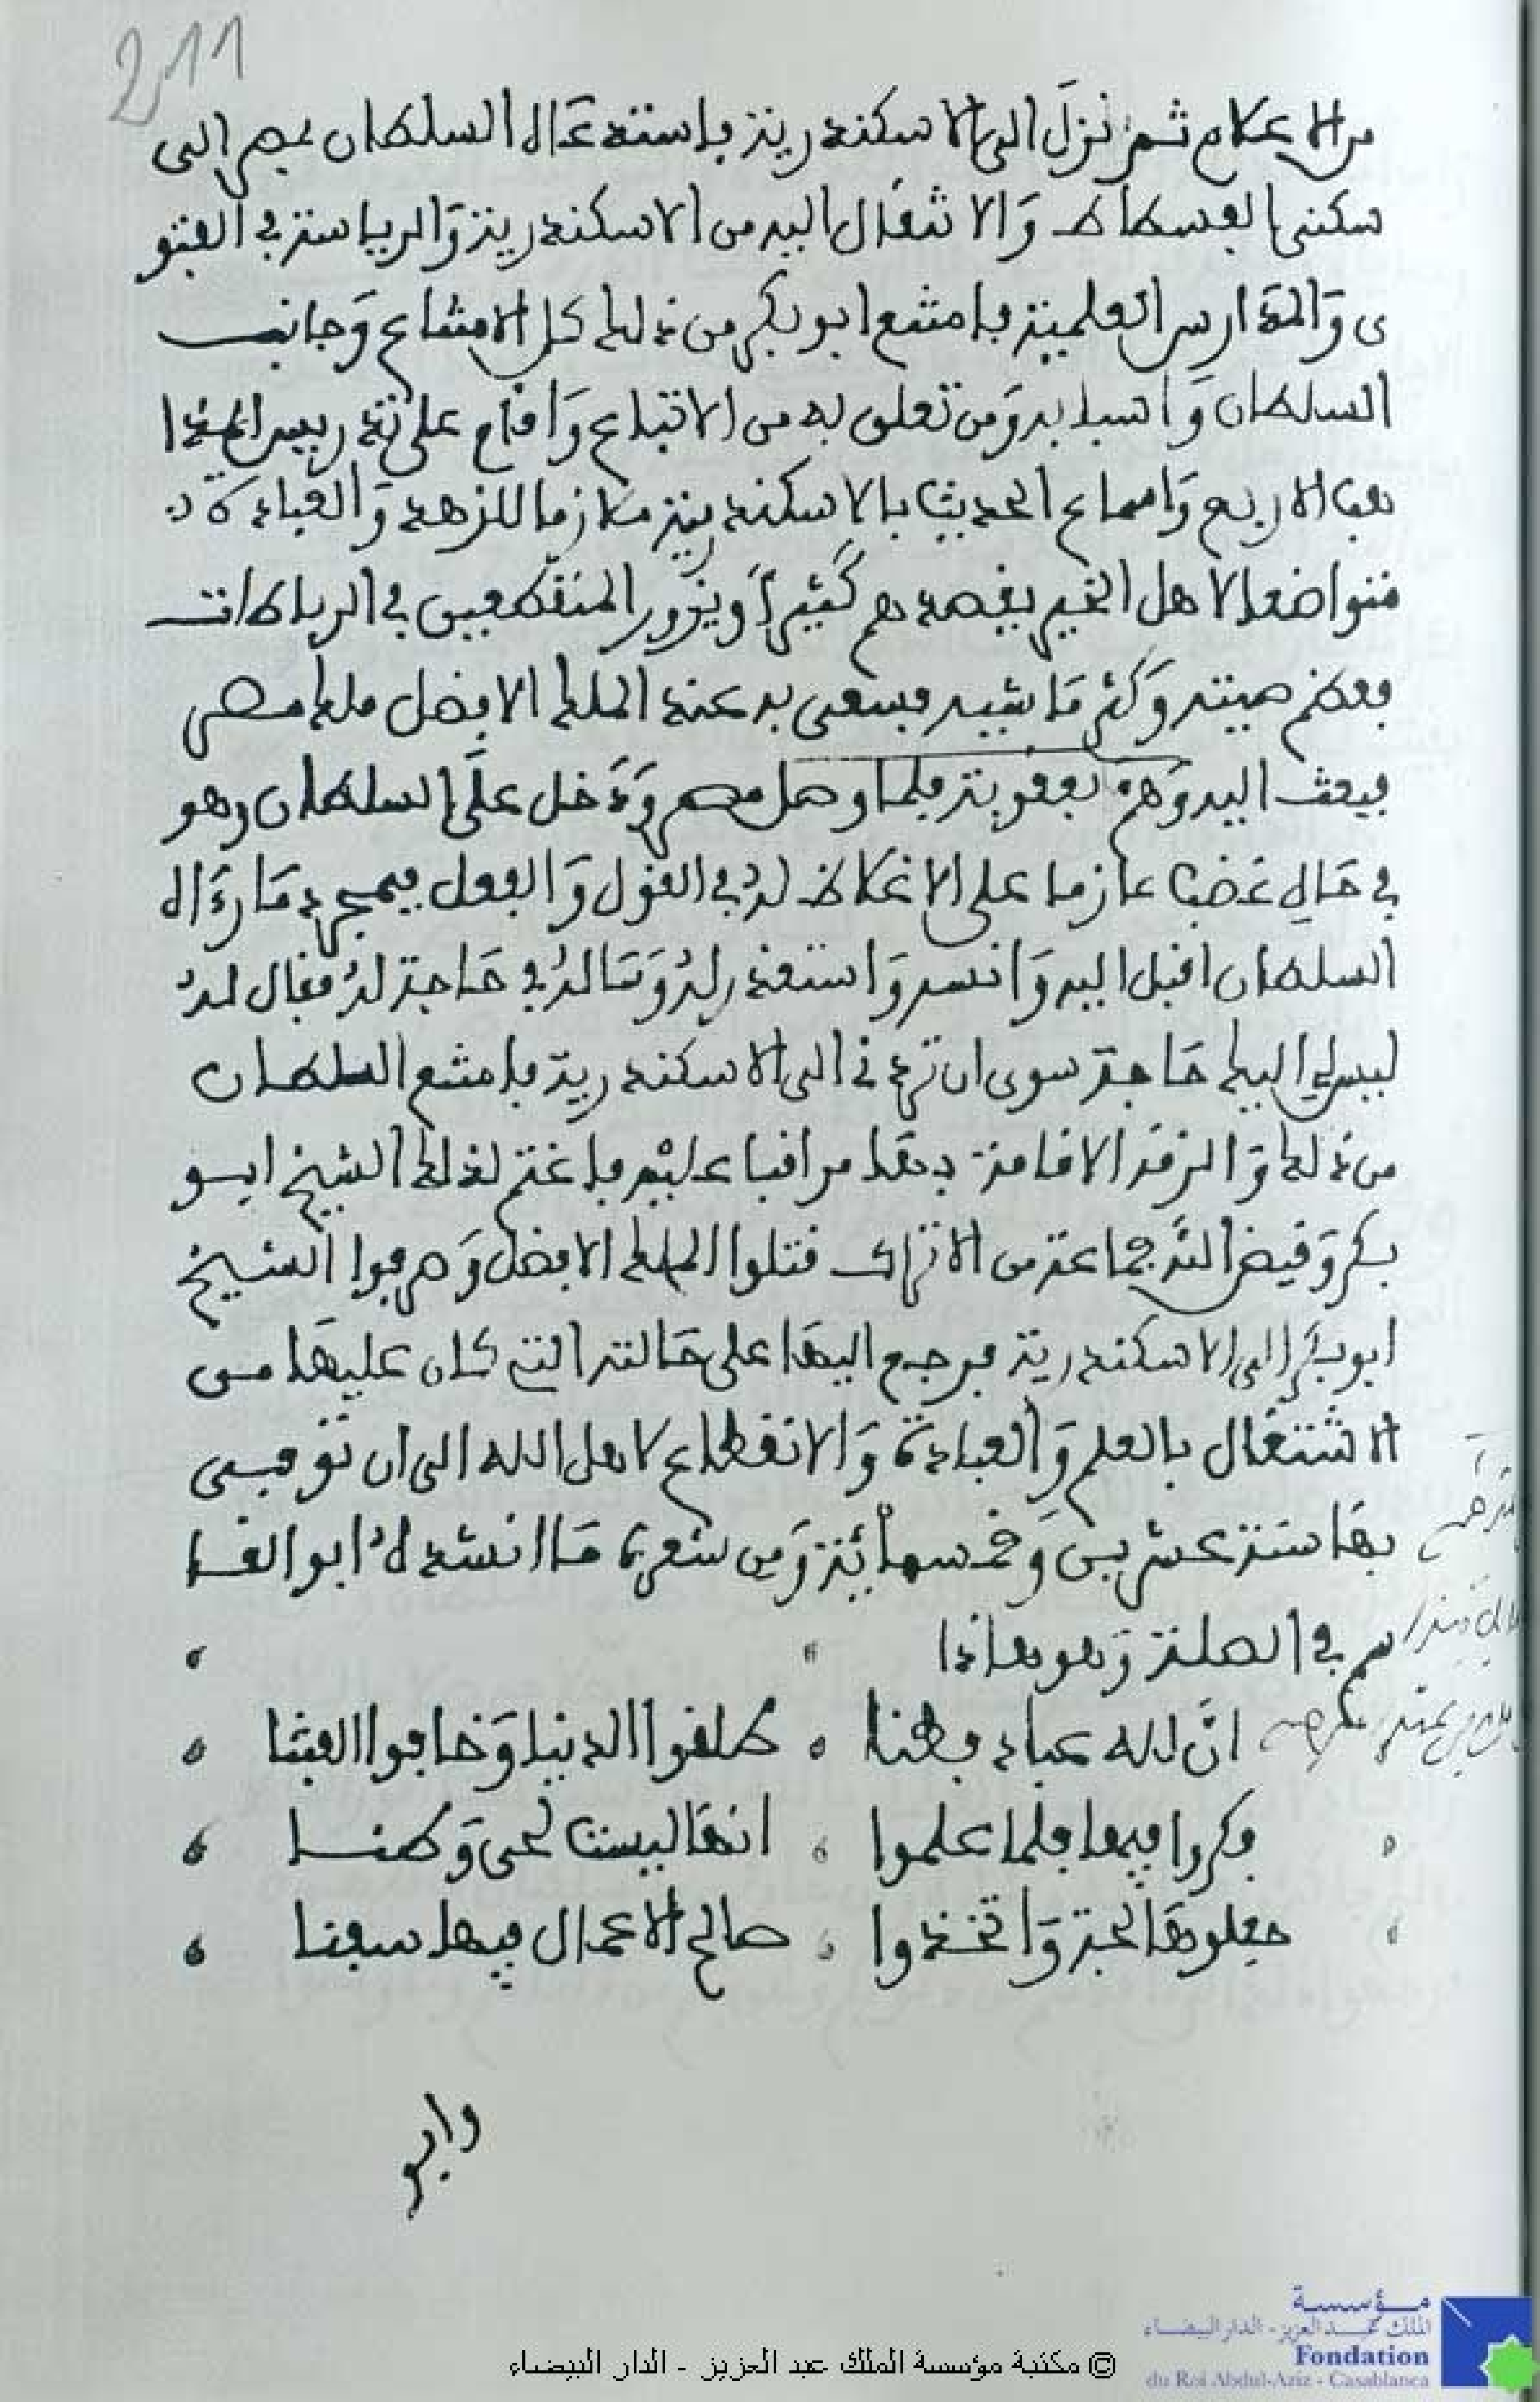 211
من الاعلام ثم نزل الى الاسكندرية باستدعاء السلطان بمصر الى
سكنى الفسطاط والانتقال اليه من الاسكندرية والرياسة في الفتو
ى والمدارس العلمية فامتنع ابو بكر من ذلك كل الامتناع وجانب
السلطان واسبابه ومن تعلق به من الاتباع واقام على تدريس المذا
هب الاربع واسماع الحديث بالاسكندرية ملازما للزهد والعبادة
متواضعا لاهل الخير يقصدهم كثيرا ويزور المنقطعين في الرباطات
فعظم صيته وكثر مايشيه فسعى به عند الملك الافضل ملك مصر
فبعث اليه وهم بعقوبته فلما وصل مصر ودخل على السلطان وهو
في حال غضب عازما على الاغلاظ له في القول والفعل فيمح دمارءاه
السلطان اقبل اليه وانسه واستعذر له وساله في حاجة له فقال له
ليس لي اليك حاجة سوى ان تردني الى الاسكندرية فامتنع السلطان
من ذلك والزمه الاقامة بمصر مراقبا عليه فاغتم لذلك الشيخ ابو
بكر وقيض الله جماعة من الاتراك قتلوا الملك الافضل وصرفوا الشيخ
ابو بكر الى الاسكندرية فرجع اليها على حالته التي كان عليها من
الاشتغال بالعلم والعبادة والانقطاع لاهل الله الى ان توفي
بها سنة عشرين وخمسمائة ومن شعره ما انشده ابو القا
سم في الصلة وهو هاذا
ان لله عباد فطنا ، طلقوا الدنيا وخافوا الفتنا
فكروا فيها فلما علموا ، انها ليست لحي وطنا
جعلوها لجة واتخذوا ، صالح الاعمال فيها سفنا
وابو
© مكتبة مؤسسة الملك عبد العزيز - الدار البيضاء
مؤسسة
الملك عبد العزيز - الدار البيضاء
Fondation
du Roi Abdul-Aziz - Casablanca